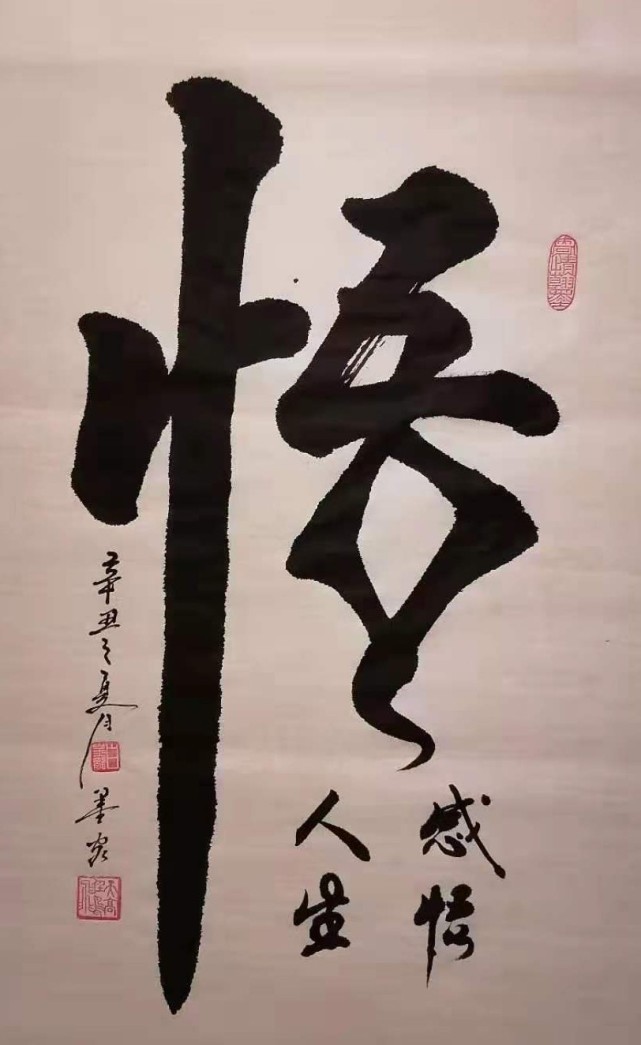 悟
感悟
人生
辛丑之夏月
墨泉